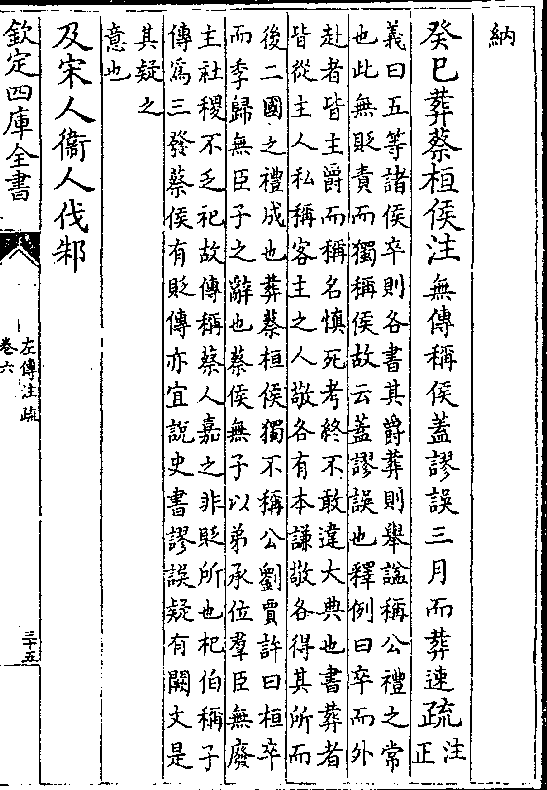 納
癸巳葬蔡桓侯注無傳稱侯蓋謬誤三月而葬速疏注正
義曰五等諸侯卒則各書其爵葬則舉諡稱公禮之常
也此無貶責而獨稱侯故云蓋謬誤也釋例曰卒而外
赴者皆主爵而稱名慎死考終不敢違大典也書葬者
皆從主人私稱客主之人敬各有本謙敬各得其所而
後二國之禮成也葬蔡桓侯獨不稱公劉賈許曰桓卒
而季歸無臣子之辭也蔡侯無子以弟承位羣臣無廢
主社稷不乏祀故傳稱蔡人嘉之非貶所也杞伯稱子
傳爲三發蔡侯有貶傳亦宜說史書謬誤疑有闕文是
其疑之
意也
及宋人衞人伐邾
欽定四庫全書
左傳注疏
卷六
三十五